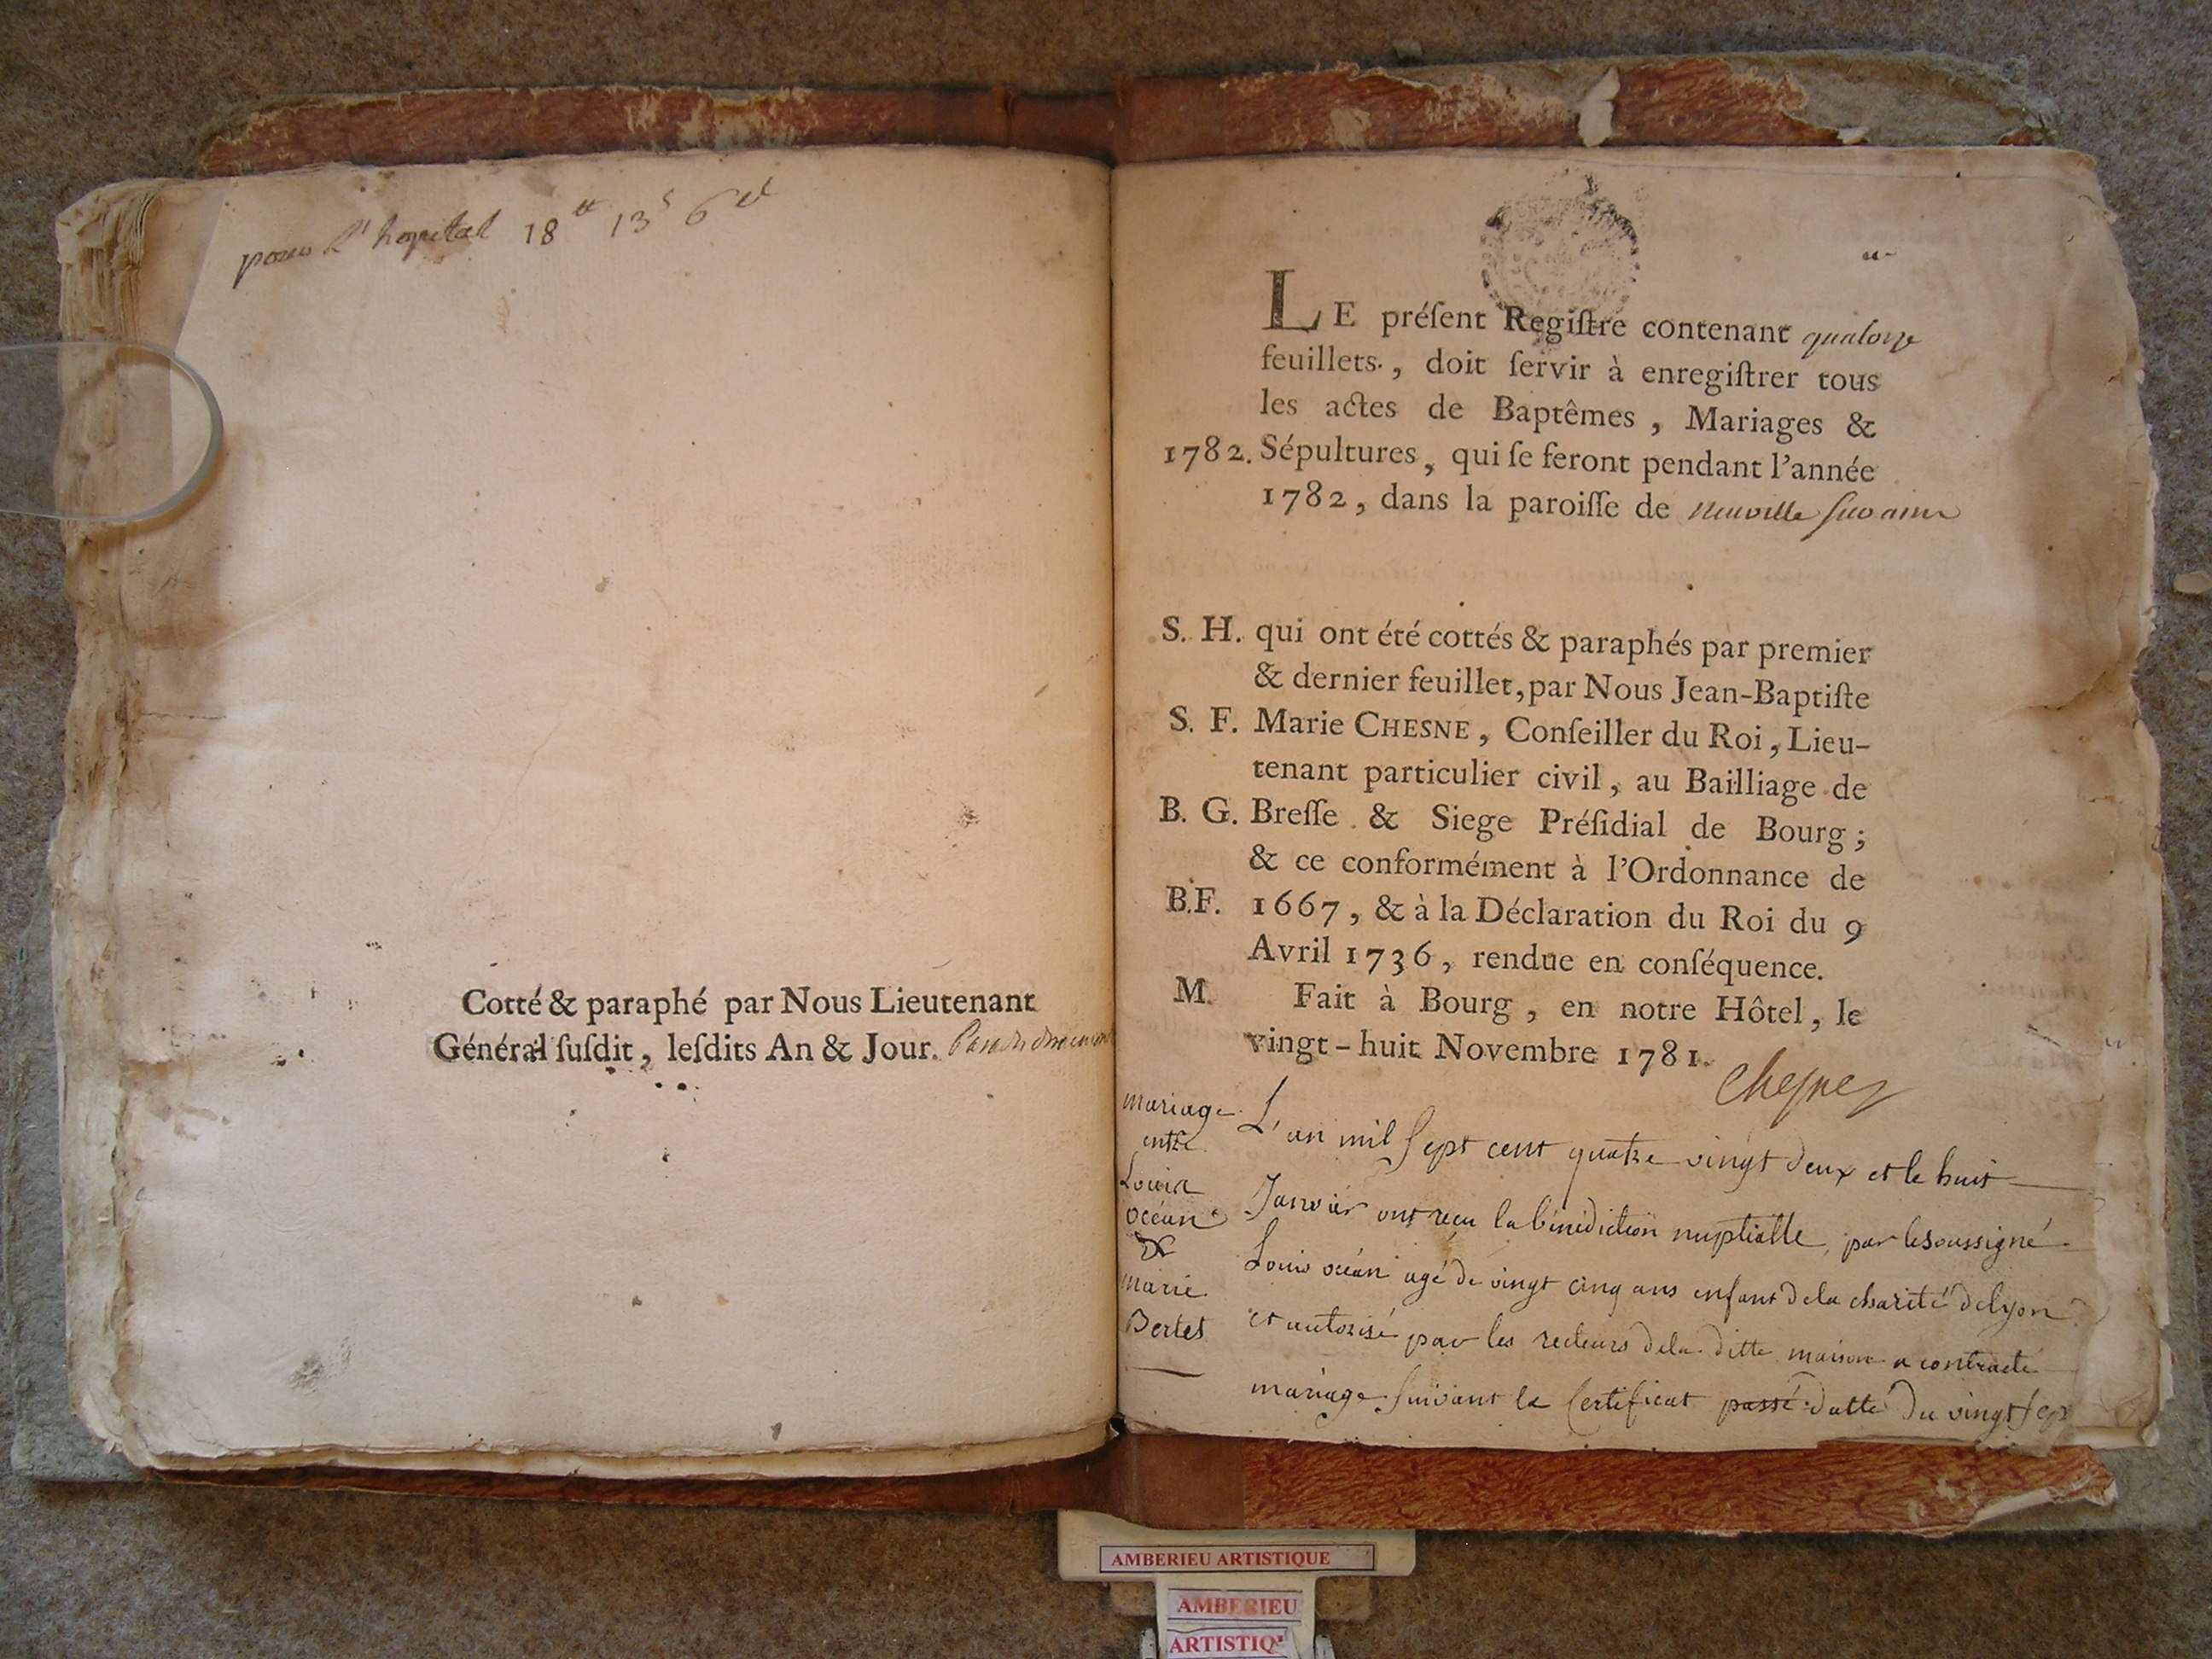 pour l'hopital 18 tt 13 s 6 d
Cotté & paraphé par Nous Lieutenant
Général ſuſdit, leſdits An & Jour.
LE préſent Regiſtre contenant quatorze
feuillets., doit ſervir à enregiſtrer tous
les actes de Baptêmes, Mariages &
1782. Sépultures, qui ſe feront pendant l'année
1782, dans la paroiſſe de neuville ſur ain
S. H. qui ont été cottés & paraphés par premier
& dernier feuillet, par Nous Jean-Baptiſte
S. F. Marie CHESNE, Conſeiller du Roi, Lieu-
tenant particulier civil, au Bailliage de
B. G. Breſſe & Siege Préſidial de Bourg;
& ce conformément à l'Ordonnance de
B.F. 1667, & à la Déclaration du Roi du 9
Avril 1736, rendue en conſéquence.
M. Fait à Bourg, en notre Hôtel, le
vingt-huit Novembre 1781.
Chesne
mariage
entre
Louis
océan
&
marie
Bertet
L'an mil sept cent quatre vingt deux et le huit
Janvier ont reçu la bénédiction nuptialle, par le soussigné
Louis océan agé de vingt cinq ans enfant de la charité de lyon
et autorisé par les recteurs de la ditte maison a contracté
mariage suivant le Certificat passé datté du vingt sept
AMBERIEU ARTISTIQUE
AMBERIEU
ARTISTIQ